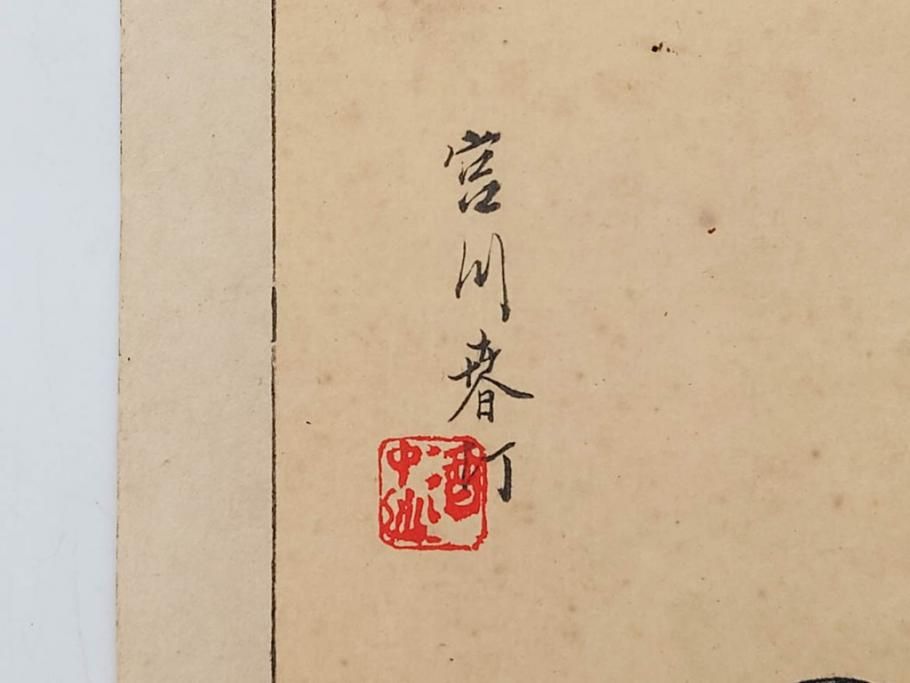 宮川春汀
酒
中仙